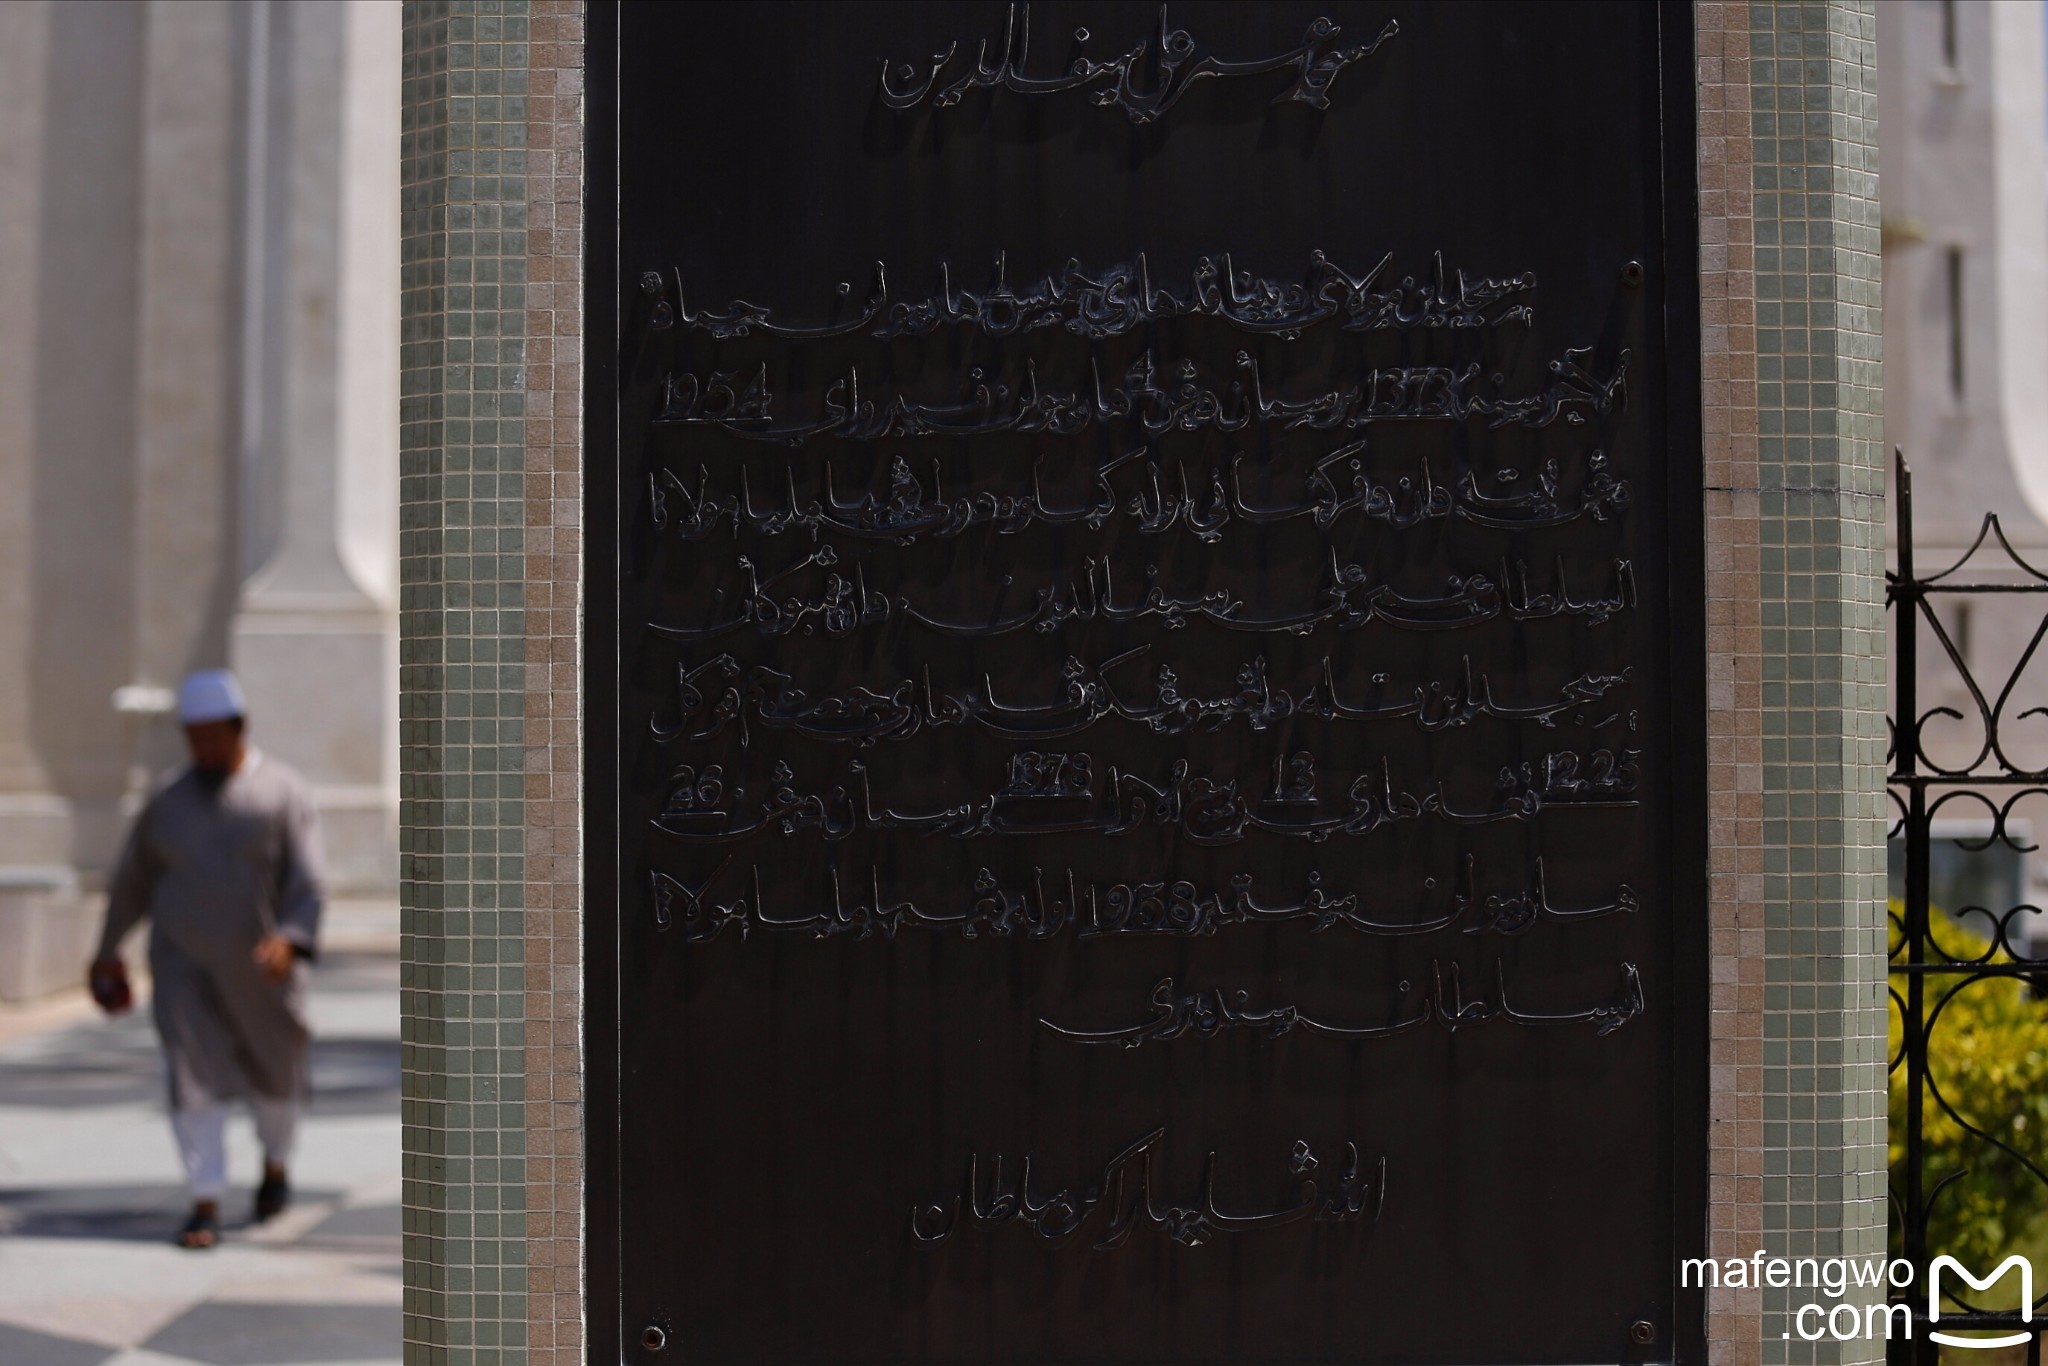 مسجد عمر علي سيف الدين
مسجد اين مولاءي دبينا ڤد هاري خميس هاريبولن جماد
الاخر سنة 1373 برسمأن دڠن 4 هاريبولن فبرواري 1954
دان اوله كباوه دولي يڠ مها مليا مولانا
السلطان عمر علي سيف الدين دان ڤمبوكأن
مسجد اين تله دلڠسوڠكن ڤد هاري جمعة ڤوكل
12.25 تڠه هاري 13 ربيع الاول 1378 برسمأن دڠن 26
هاريبولن سيفتمبر 1958 اوله يڠ مها مليا مولانا
السلطان سنديري
الله ڤليهاراكن سلطان
mafengwo
.com